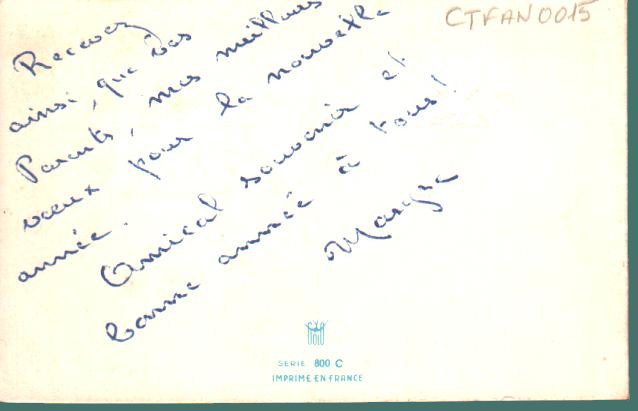 CTFAN0015
Recevez
ainsi, que vos
Parents, mes meilleurs
vœux pour la nouvelle
année.
Amical souvenir et
bonne année à tous!
SERIE 800 C
IMPRIME EN FRANCE